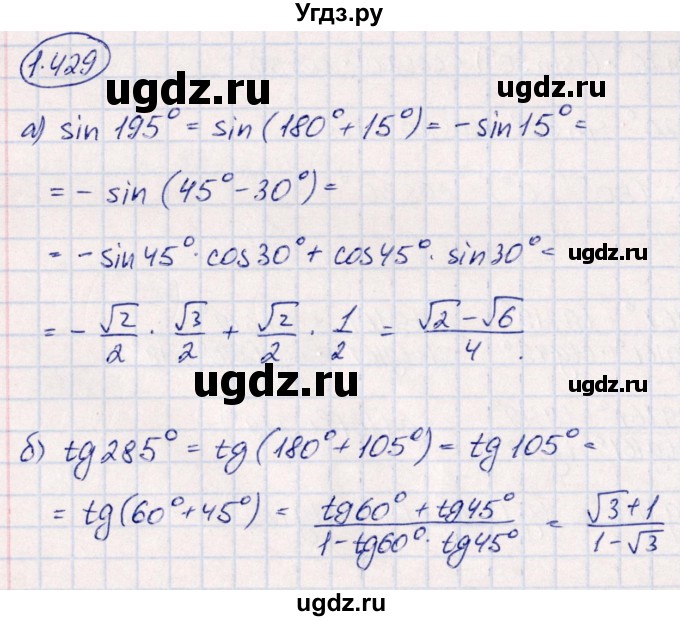 Угдз.ру
1.429
ugdz.ru ugdz.ru
а) sin 195° = sin(180° + 15°) = - sin15° =
= - sin (45° - 30°) =
= - sin45° · cos30° + cos45° · sin30° =
ugdz.ru
= - √2/2 · √3/2 + √2/2 · 1/2 = (√2 - √6)/4.
ugdz.ru ugdz.ru
б) tg285° = tg(180° + 105°) = tg105° =
= tg(60° + 45°) = (tg60° + tg45°)/(1 - tg60° · tg45°) = (√3 + 1)/(1 - √3)
ugdz.ru